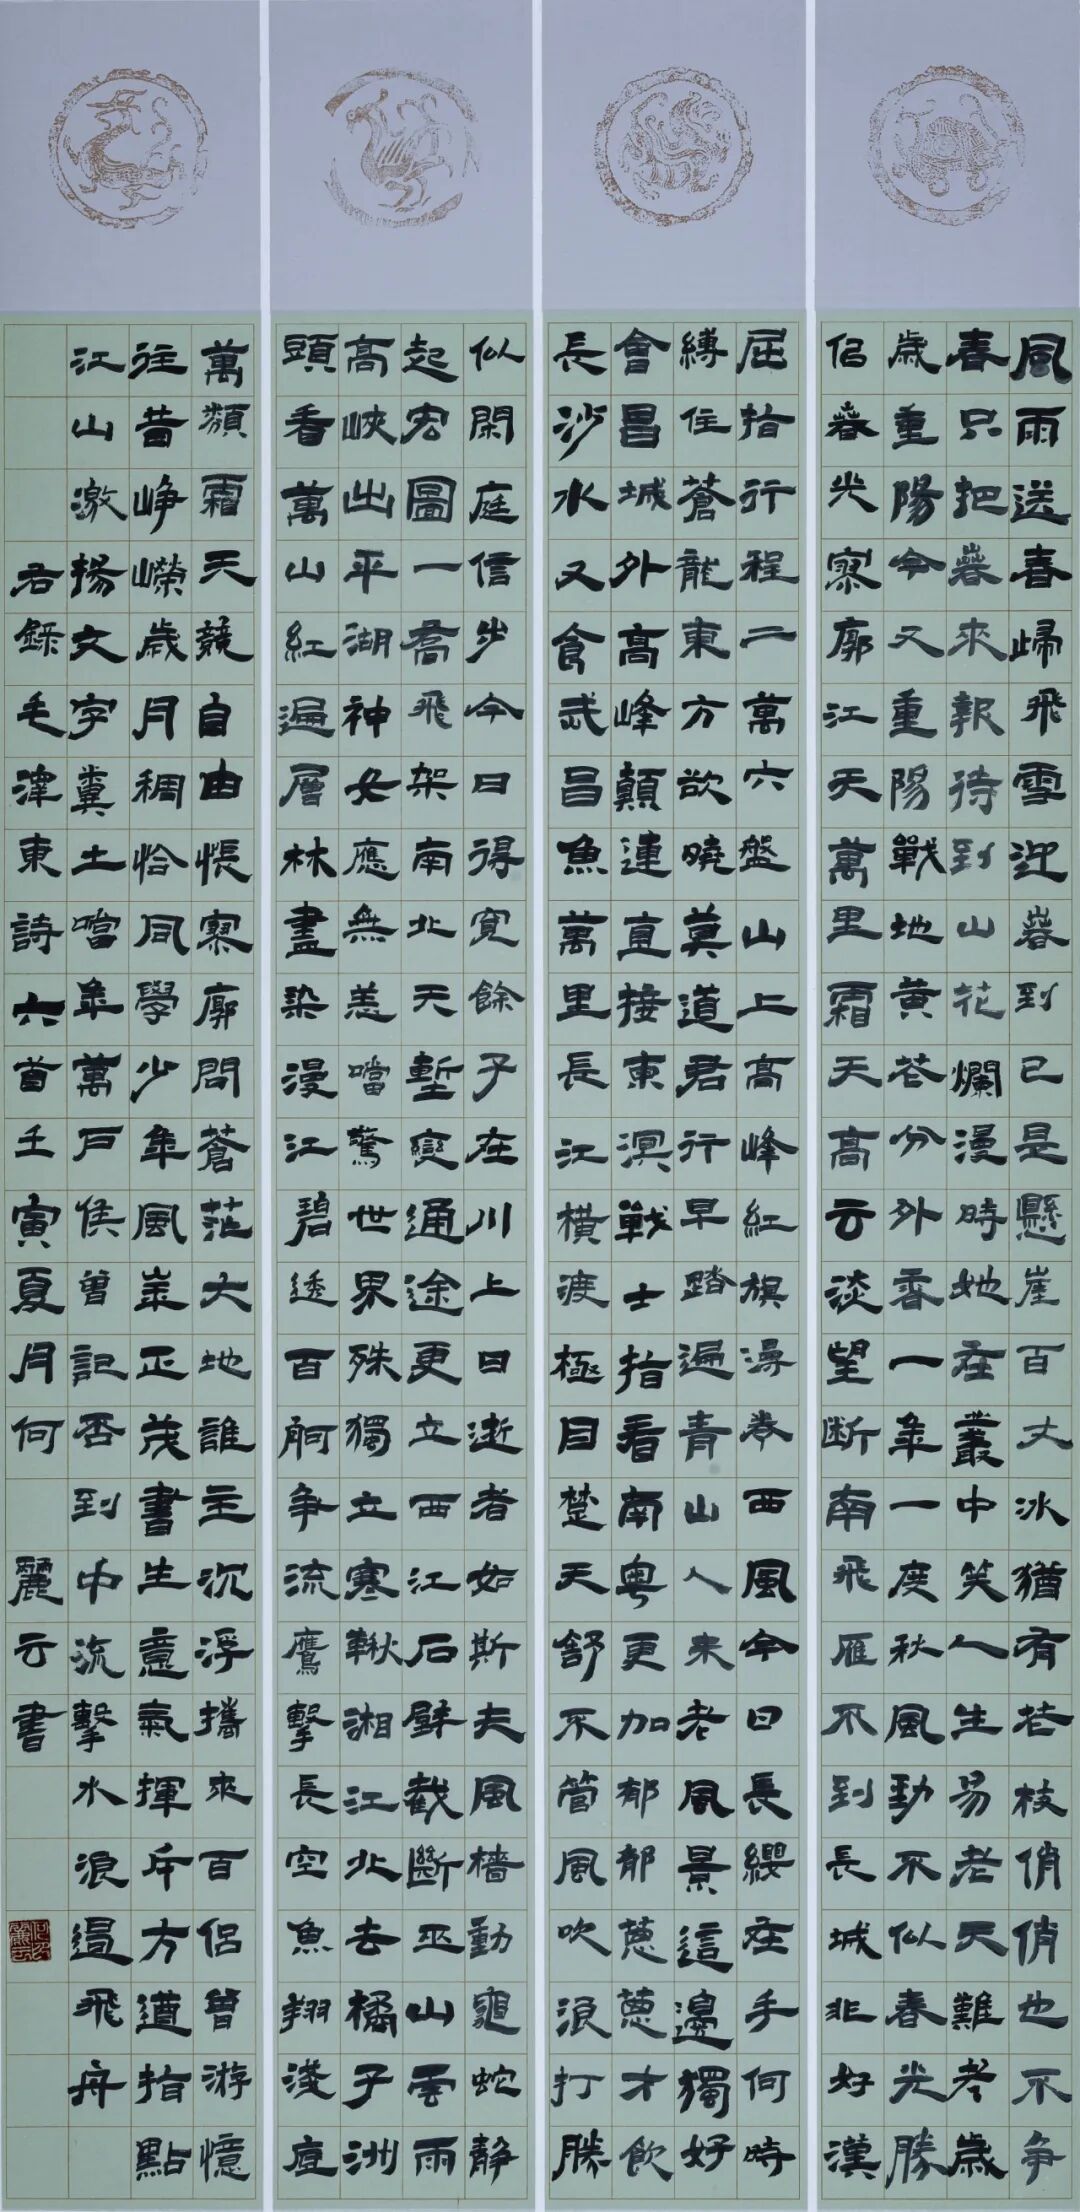 風雨送春歸飛雪迎春到已是懸崖百丈冰猶有花枝俏俏也不爭
春只把春來報待到山花爛漫時她在叢中笑人生易老天難老歲
歲重陽今又重陽戰地黃花分外香一年一度秋風勁不似春光勝
佀春光寥廓江天萬里霜天高云淡望断南飛雁不到長城非好漢
屈指行程二萬六盤山上高峰紅旗漫卷西風今日長纓在手何時
縛住蒼龍東方欲曉莫道君行早踏遍青山人未老風景這邊獨好
會昌城外高峰顛連直接東溟戰士指看南粵更加郁郁蔥蔥才飲
長沙水又食武昌魚萬里長江橫渡極目楚天舒不管風吹浪打勝
似閑庭信步今日得寬餘子在川上曰逝者如斯夫風檣動龜蛇静
起宏圖一喬飛架南北天塹變通途更立西江石壁截斷巫山雲雨
高峽出平湖神女應無恙噹驚世界殊獨立寒鞦湘江北去橘子洲
頭看萬山紅遍層林盡染漫江碧透百舸争流鷹擊長空魚翔淺底
萬類霜天競自由悵寥廓問蒼茫大地誰主沉浮攜來百侣曾游憶
往昔崢嶸歲月稠恰同學少年風華正茂書生意氣揮斥方遒指點
江山激揚文字糞土噹年萬户侯曾記否到中流擊水浪遏飛舟
右録毛澤東詩六首壬寅夏月何麗云書